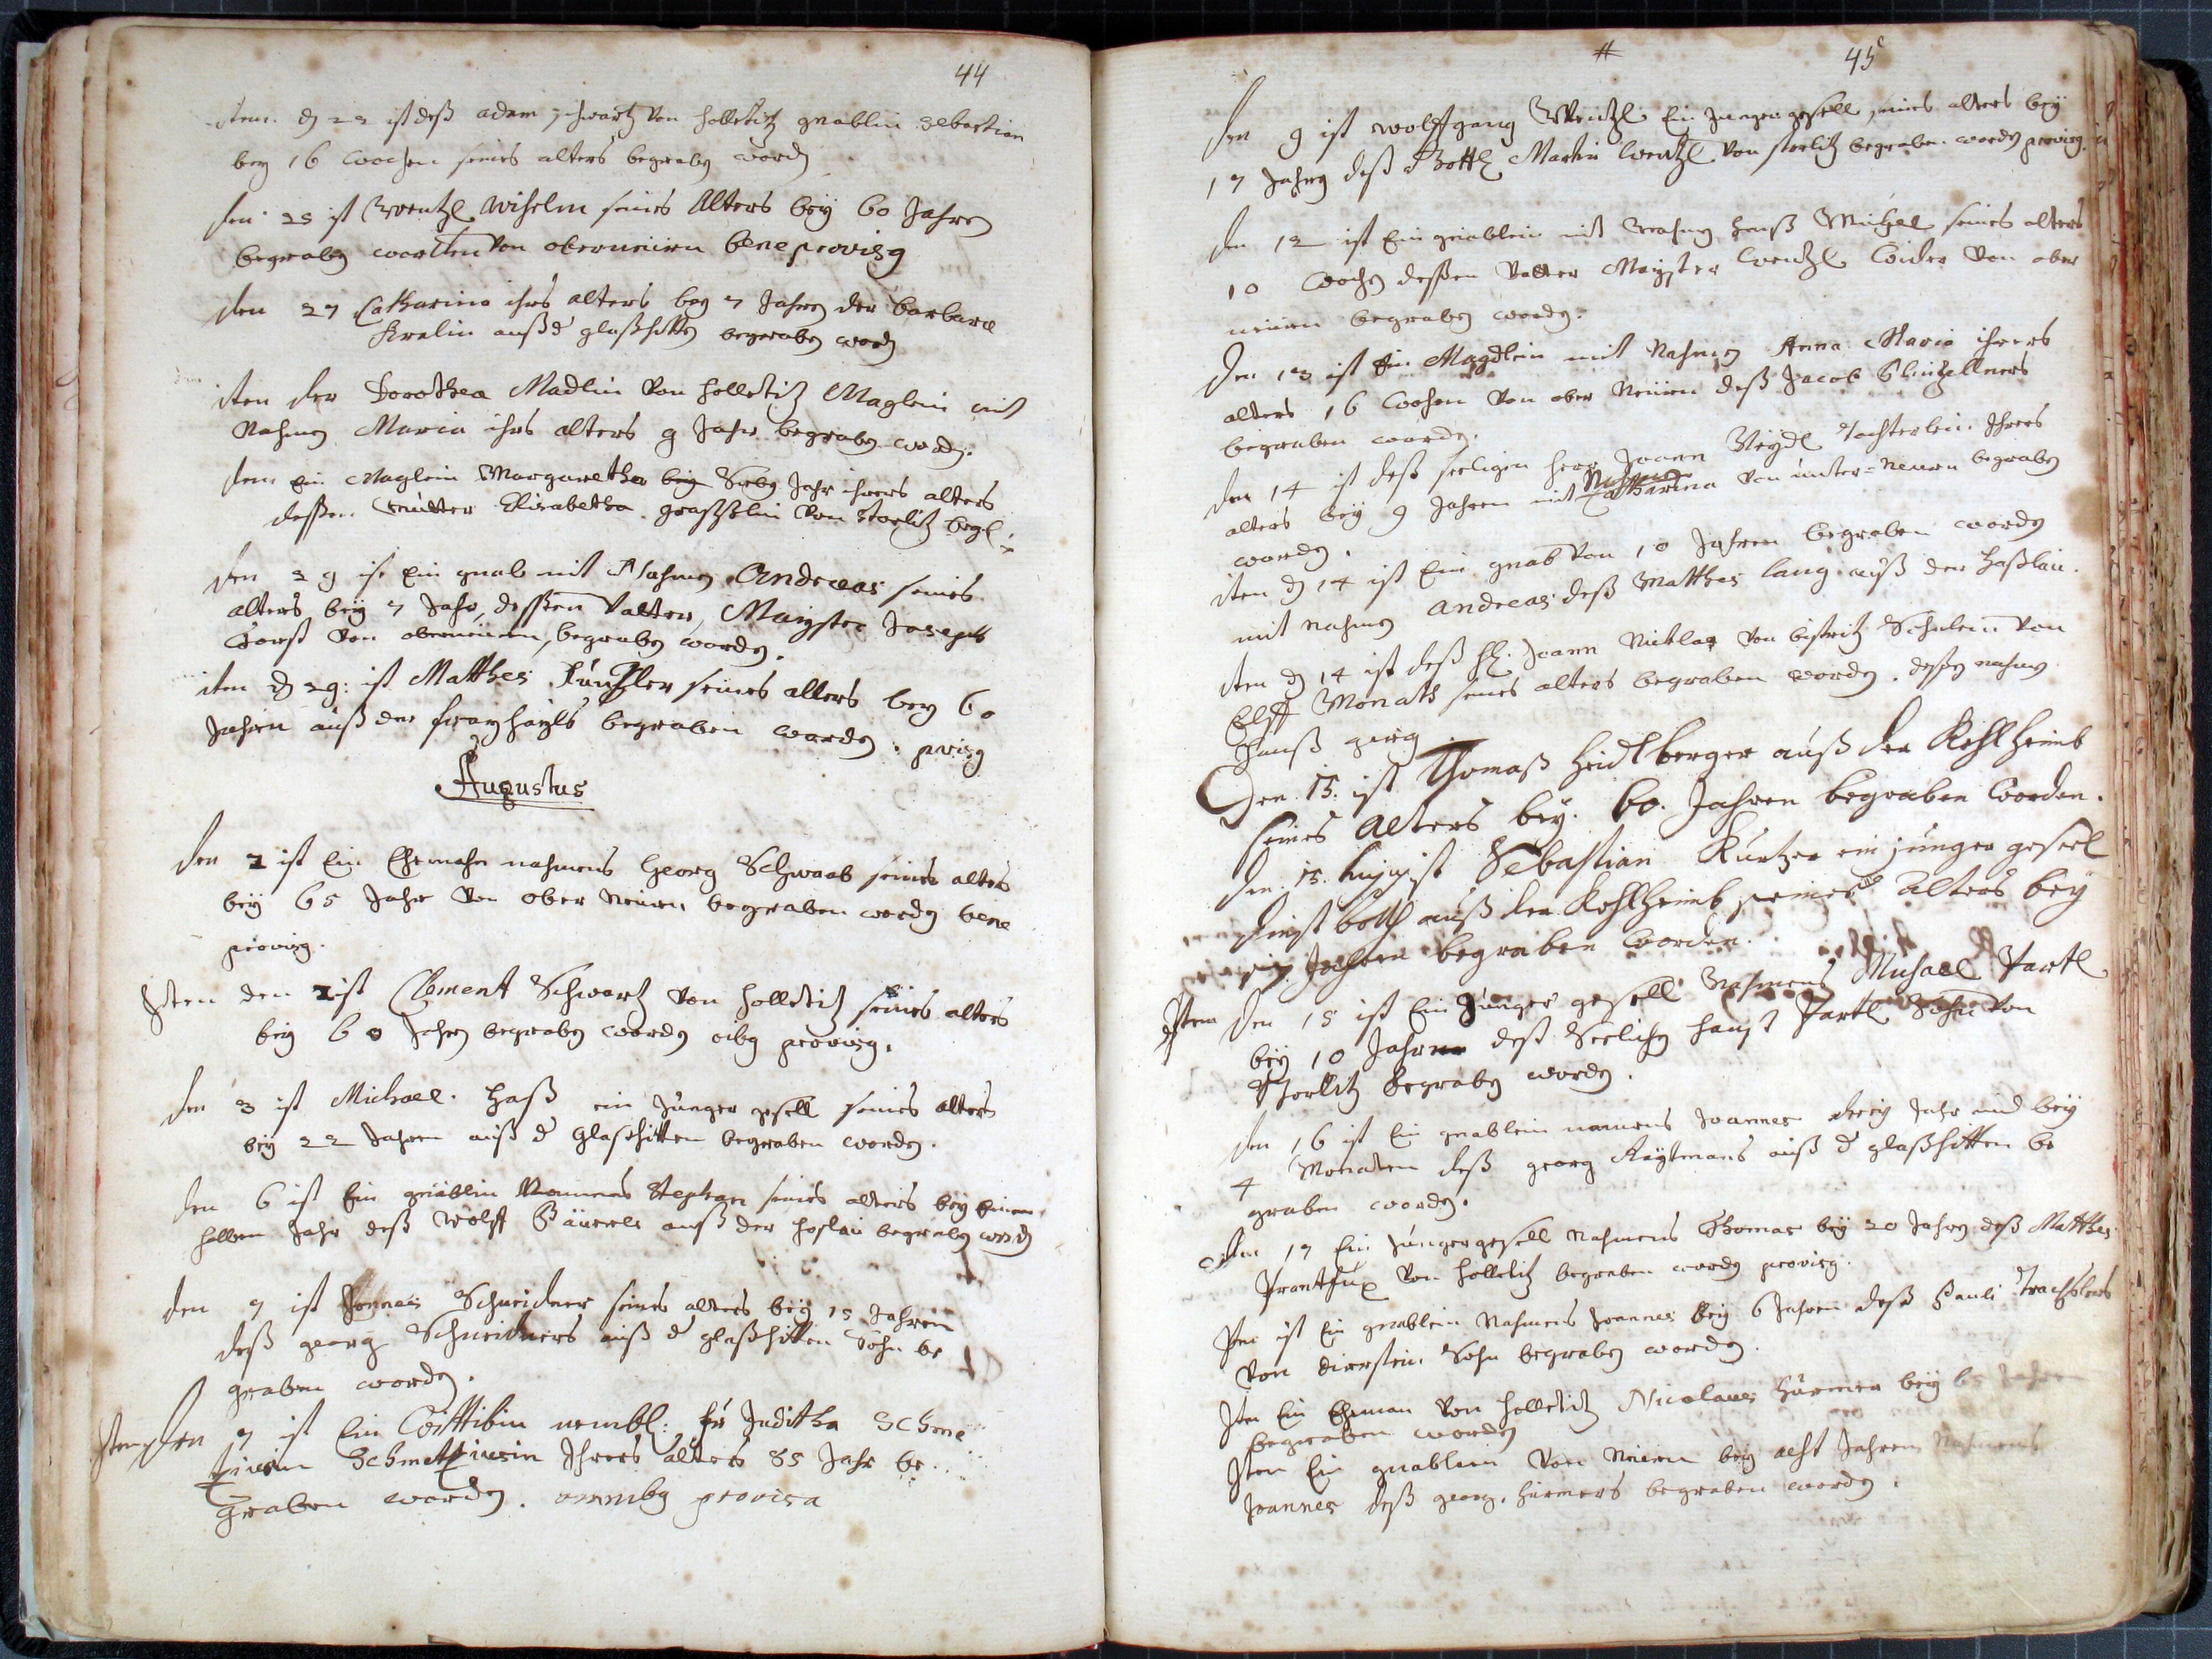 44
item. d 22 ist deß adam schwartz von holletitz gnablin Sebastian
bey 16 wochen seines alters begraben word
den 25 ist Wentzl Wihelm seines Alters bey 60 Jahren
begraben worden von oberneüern bene provisg
den 27 Catharina ihrs alters bey 7 Jahren der barbara
auß d glaßhitten begraben word
iten der Dorothea Madlin von holletitz Maglein mit
Nahmen Maria ihrs alters 9 Jahr begraben worden.
item Ein Maglein Margaretha bey Jahr ihrers alters
dessen Mutter Elisabetha von Storlitz begl
den 29 ist Ein gnab mit Nahmen Andreas seines
alters bey 7 Jahr, dessen Vatter, Mayster Joseph
von oberneüern, begraben worden.
iten d 29: ist Matthes seines alters bey 60
Jahren auß der begraben worden. prvisg
Augustus
den 1 ist Ein Ehemahn nahmens Georg Schwaab seines alters
bey 65 Jahr von ober Neüern begraben worden bene
provisg.
Iten den 1 ist Clement Schwartz von holletitz seines alters
bey 60 Jahren begraben worden oibg provisg.
den 3 ist Michael. haß ein junger gesell seines alters
bey 22 Jahren auß d Glaßhitten begraben worden.
den 6 ist Ein gnäblin Namens Stephan seines alters bey Einem
halben Jahr deß Wolff auß der haslau begraben word
den 7 ist Joannes Schneider seines alters bey 15 Jahren
deß georg Schneiders auß d glaßhitten Sohn be
graben worden.
Item den 7 ist Ein Wittibin nembl: Juditha Schme
Schmet Ihrers alters 85 Jahr be
graben worden. omnibg provisa
45
den 9 ist wolffgang Wentzl Ein Junger gesell seines alters bey
17 Jahren deß Martin Wentzl von storlitz begraben worden provisg.
den 12 ist Ein gnablein mit Nahmen hanß Michael seines alters
10 wochen dessen Vatter Mayster Wentzl von ober
neüern begraben worden.
den 13 ist Ein Magdlein mit Nahmen Anna Maria ihrers
alters 16 wochen von ober Neüern deß Jacob
begraben worden.
den 14 ist deß seeligen herr Joann Tochterlein Ihrers
alters bey 9 Jahren mit Nahmen Catharina von unter=Neuern begraben
worden.
iten d 14 ist Ein gnab von 10 Jahren begraben worden
mit nahmen Andreas deß Matthes lang auß der haßlau.
iten d 14 ist deß h. Joann Nicklas von bistritz Sohnlein von
Elff Monath seines alters begraben worden. dessen nahmen
Hanß georg
Den 15. ist Thomaß heidlberger auß der Kohlheimb
seines alters bey. 60. Jahren begraben worden.
Den. 15. hujg ist Sebastian Kurtzer ein junger gesell
auß der Kohlheimb seines alters bey
Jahren begraben worden.
Item den 15 ist Ein Junger gesell Nahmens Michael Partl
bey 10 Jahren deß Seeligen hanß Partl Sohn von
Storlitz begraben worden.
den 16 ist Ein gnablein namens Joannes Jahr und bey
4 Monaten deß georg auß d glaßhitten be
graben worden.
den 17 Ein Junger gesell Nahmens Thomas bey 20 Jahren deß Matthes
von holletitz begraben worden provisg.
Iten ist Ein gnablein Nahmens Joannes bey 6 Jahren deß Pauli
von dierstein Sohn begraben worden.
Iten Ein Ehman von holletitz Nicolaus bey 65 Jahren
begraben worden
Iten Ein gnablein von Neüern bey acht Jahren Nahmens
Joannes deß georg. begraben worden.